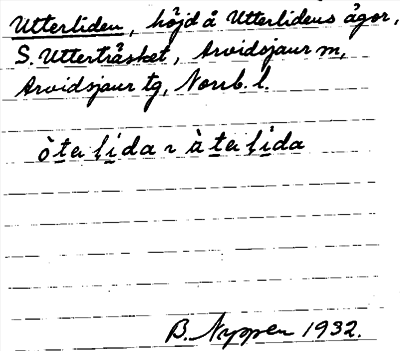 Utterliden, höjd å Utterlidens ägor,
S. Utterträsket, Arvidsjaur m,
Arvidsjaur tg, Norrb. l.
òtalida ɩ àtalida
B. Nyppen 1932.